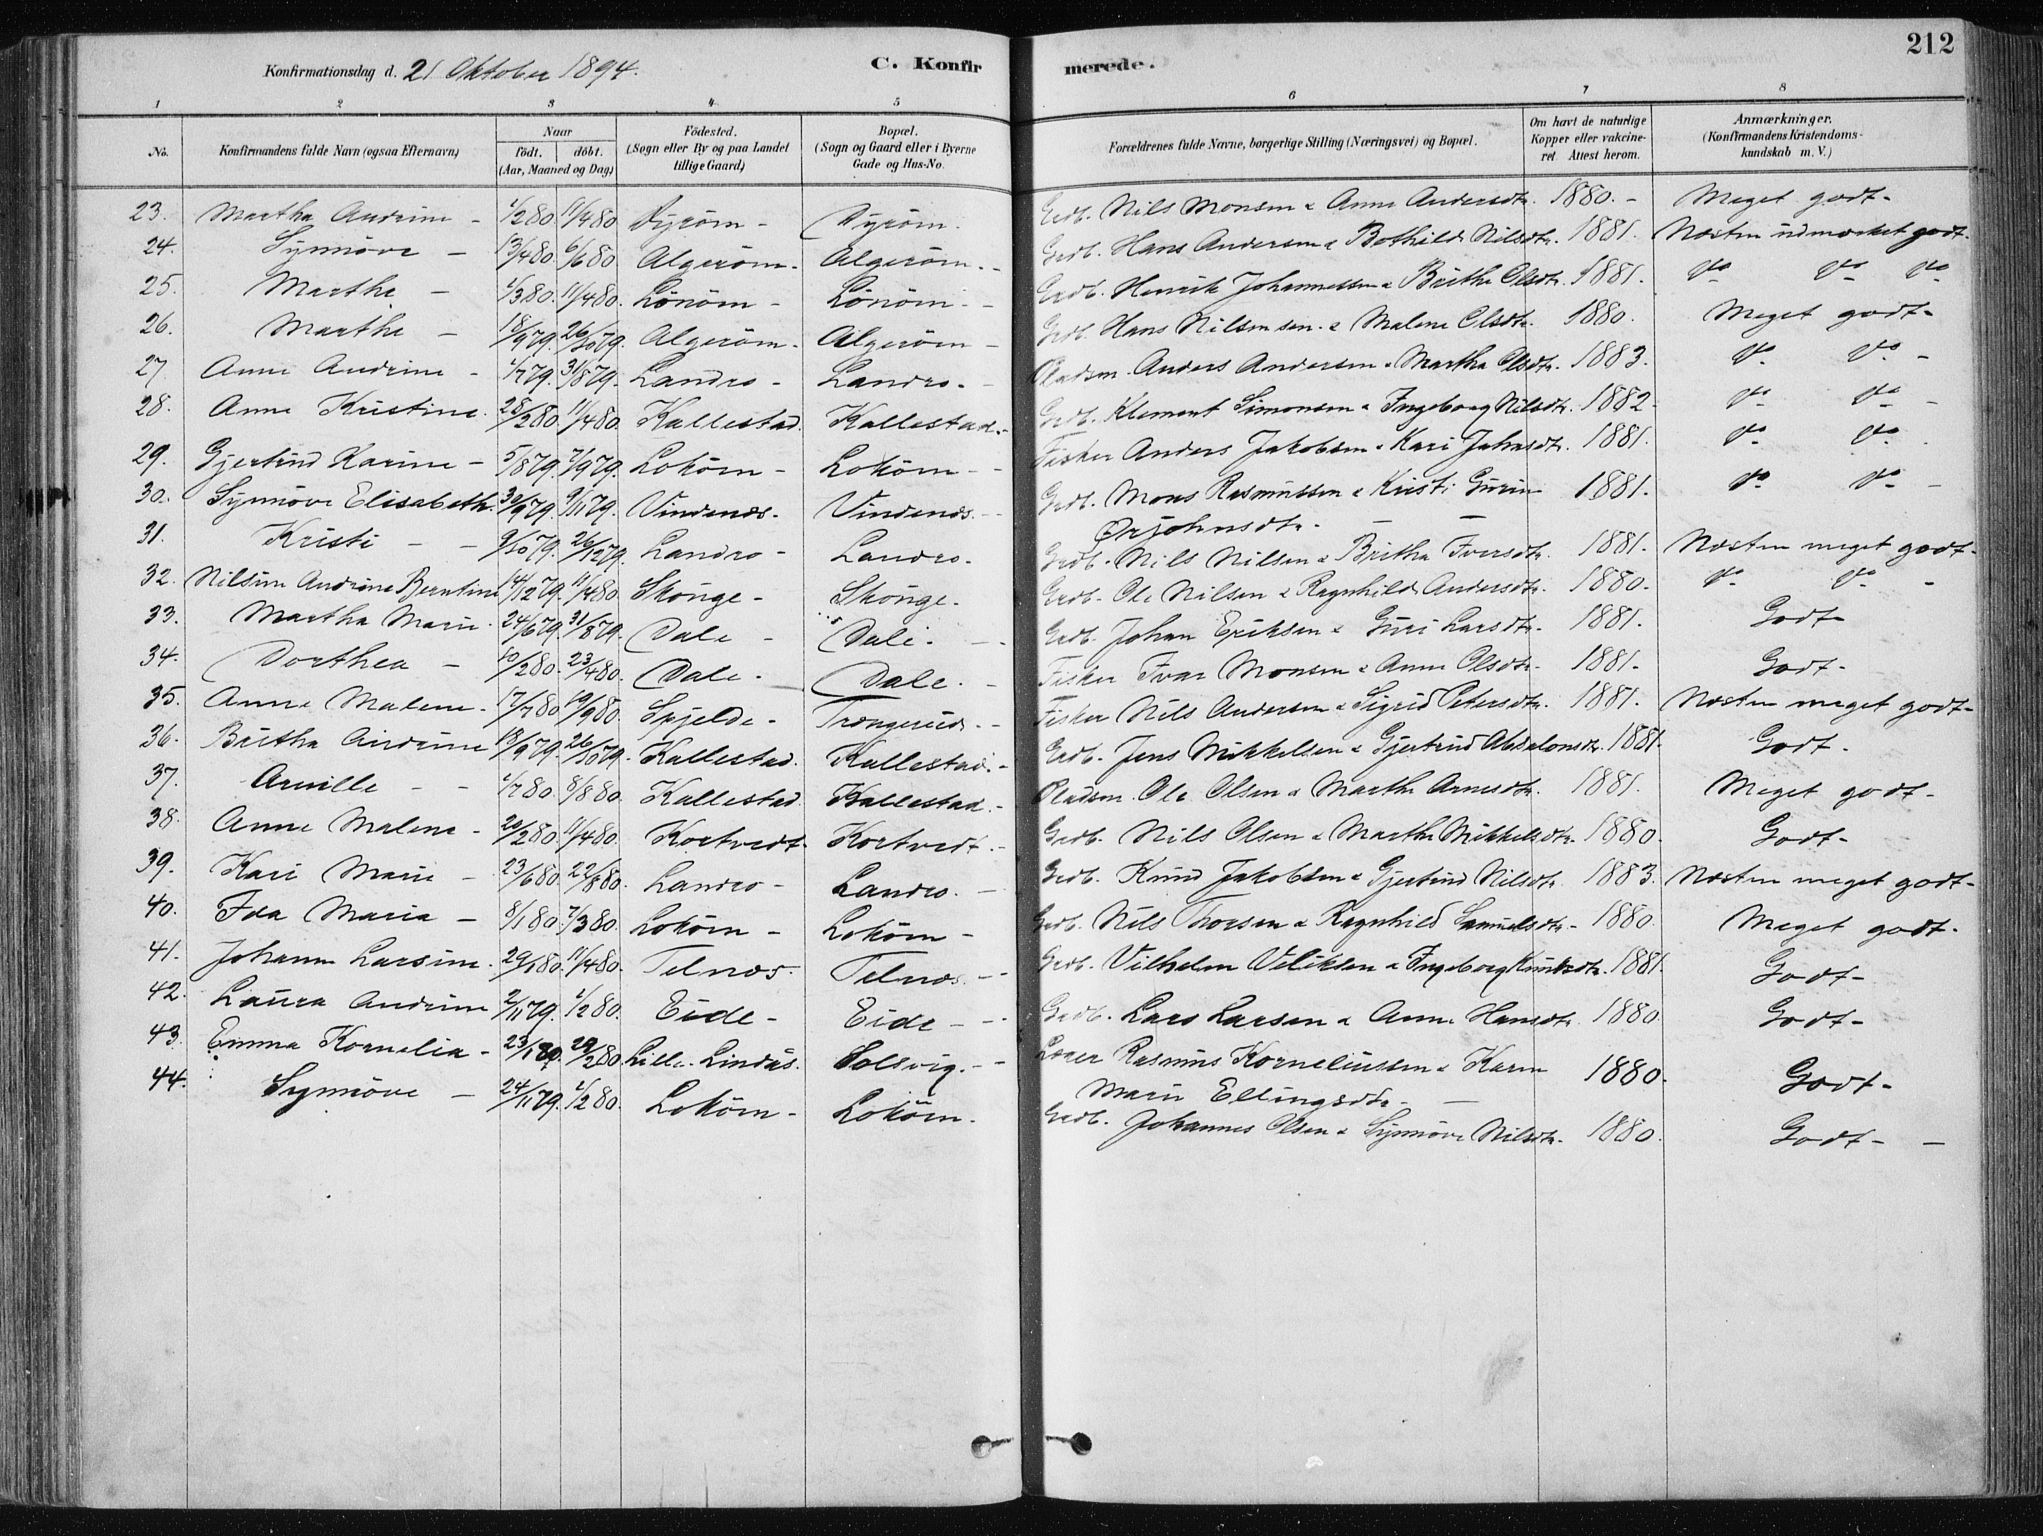 212
Konfirmationsdag d. 21 Oktober 1894.
C. Konfirmerede.
1 2 3 4 5 6 7 8
No. Konfirmandens fulde Navn (ogsaa Efternavn) Naar födt. döbt. (Aar, Maaned og Dag) Födested. (Sogn eller By og paa Landet tillige Gaard) Bopæl. (Sogn og Gaard eller i Byerne Gade og Hus-No. Forældrenes fulde Navne, borgerlige Stilling (Næringsvei) og Bopæl. Om havt de naturlige Kopper eller vakcineret Attest herom. Anmærkninger. (Konfirmandens Kristendomskundskab m. V.)
23. Martha Andrine - 1/2 80. 11/4 80. Dyröen - Dyröen. Grdb. Nils Monsen & Anne Andersdtr. 1880. - Meget godt -
24. Synnöve - 13/4 80. 6/6 80. Algeröen - Algeröen - Grdb. Hans Andersen & Bothilde Nilsdtr. 1881. Næsten udmærket godt.
25. Marthe - 1/3 80. 11/4 80. Lönöen - Lönöen - Grdb. Henrik Johannessen & Brithe Olsdtr. 1881. do do do
26. Marthe - 18/9 79. 26/10 79. Algeröen - Algeröen - Grdb. Hans Nilsen sen. & Malene Olsdtr. 1880. Meget godt -
27. Anne Andrine - 1/7 79. 31/8 79. Landro - Landro - Pladsm. Anders Andersen & Martha Olsdtr. 1883. do do -
28. Anne Kristine. 28/2 80. 11/4 80. Kallestad. Kallestad. - Grdb. Klement Simonsen & Ingeborg Nilsdtr. 1882. do do -
29. Gjertrud Karine - 5/8 79. 7/9 79. Loköen - Loköen - Fisker Anders Jakobsen & Kari Johnsdtr. 1881. do do
30. Synnöve Elisabeth. 30/9 79. 9/11 79. Vindenæs - Vindenæs - Grdb. Mons Rasmussen & Kristi Gurine 1881. do do -
Örjohnsdtr. - -
31. Kristi - - 9/10 79. 26/12 79. Landro - Landro - Grdb. Nils Nilsen & Britha Iversdtr. 1881. Næsten meget godt -
32. Nilsine Andrine Berntine 14/12 79. 11/4 80. Skonge - Skonge - Grdb. Ole Nilsen & Ragnhilde Andersdtr. 1880. do do -
33. Martha Marie. 24/6 79. 31/8 79. Dale - Dale. - Grdb. Johan Eriksen & Guri Larsdtr. 1881. Godt
34. Dorthea - 10/2 80. 23/4 80. Dale. Dale. - Fisker Ivar Monsen & Anne Olsdtr. 1881. Godt -
35. Anne Malene. 17/7 80. 19/9 80. Spjelde - Trængereid - Fisker Nils Andersen & Sigrid Petersdtr. 1881. Næsten meget godt -
36. Britha Andrine 18/9 79. 26/10 79. Kallestad. Kallestad. - Grdb. Jens Mikkelsen & Gjertrud Absalonsdtr. 1881. Godt -
37. - - 1/7 80. 8/8 80. Kallestad. Kallestad. - Pladsm. Ole Olsen & Marthe Arnesdtr. 1881. Meget godt -
38. Anne Malene - 20/2 80. 11/4 80. Kortvedt - Kortvedt - Grdb. Nils Olsen & Marthe Mikkelsdtr. 1880. Godt -
39. Kari Marie - 23/6 80. 22/8 80. Landro - Landro. - Grdb. Knud Jakobsen & Gjertrud Nilsdtr. 1883. Næsten meget godt -
40. Ida Maria - 8/1 80. 7/3 80. Loköen - Loköen - Grdb. Nils Thorsen & Ragnhild Samuelsdtr - 1880. Meget godt -
41. Johanne Larsine. 29/1 80. 11/4 80. Telnæs. Telnæs. - Grdb. Vilhelm Veliksen & Ingeborg Knudsdtr. 1881. Godt -
42. Laura Andrine 2/11 79. 1/2 80. Eide - Eide - Grdb. Lars Larsen & Anne Hansdtr. 1880. Godt -
43. Emma Kornelia - 23/1 80. 29/2 80. Lille Lindås. Solsvig. - Lærer Rasmus Korneliussen & Karen 1880. Godt -
Marie Ellingsdtr. - -
44. Synnöve - 24/11 79. 1/2 80. Loköen - Loköen. Grdb. Johannes Olsen & Synnöve Nilsdtr. 1880. Godt - -